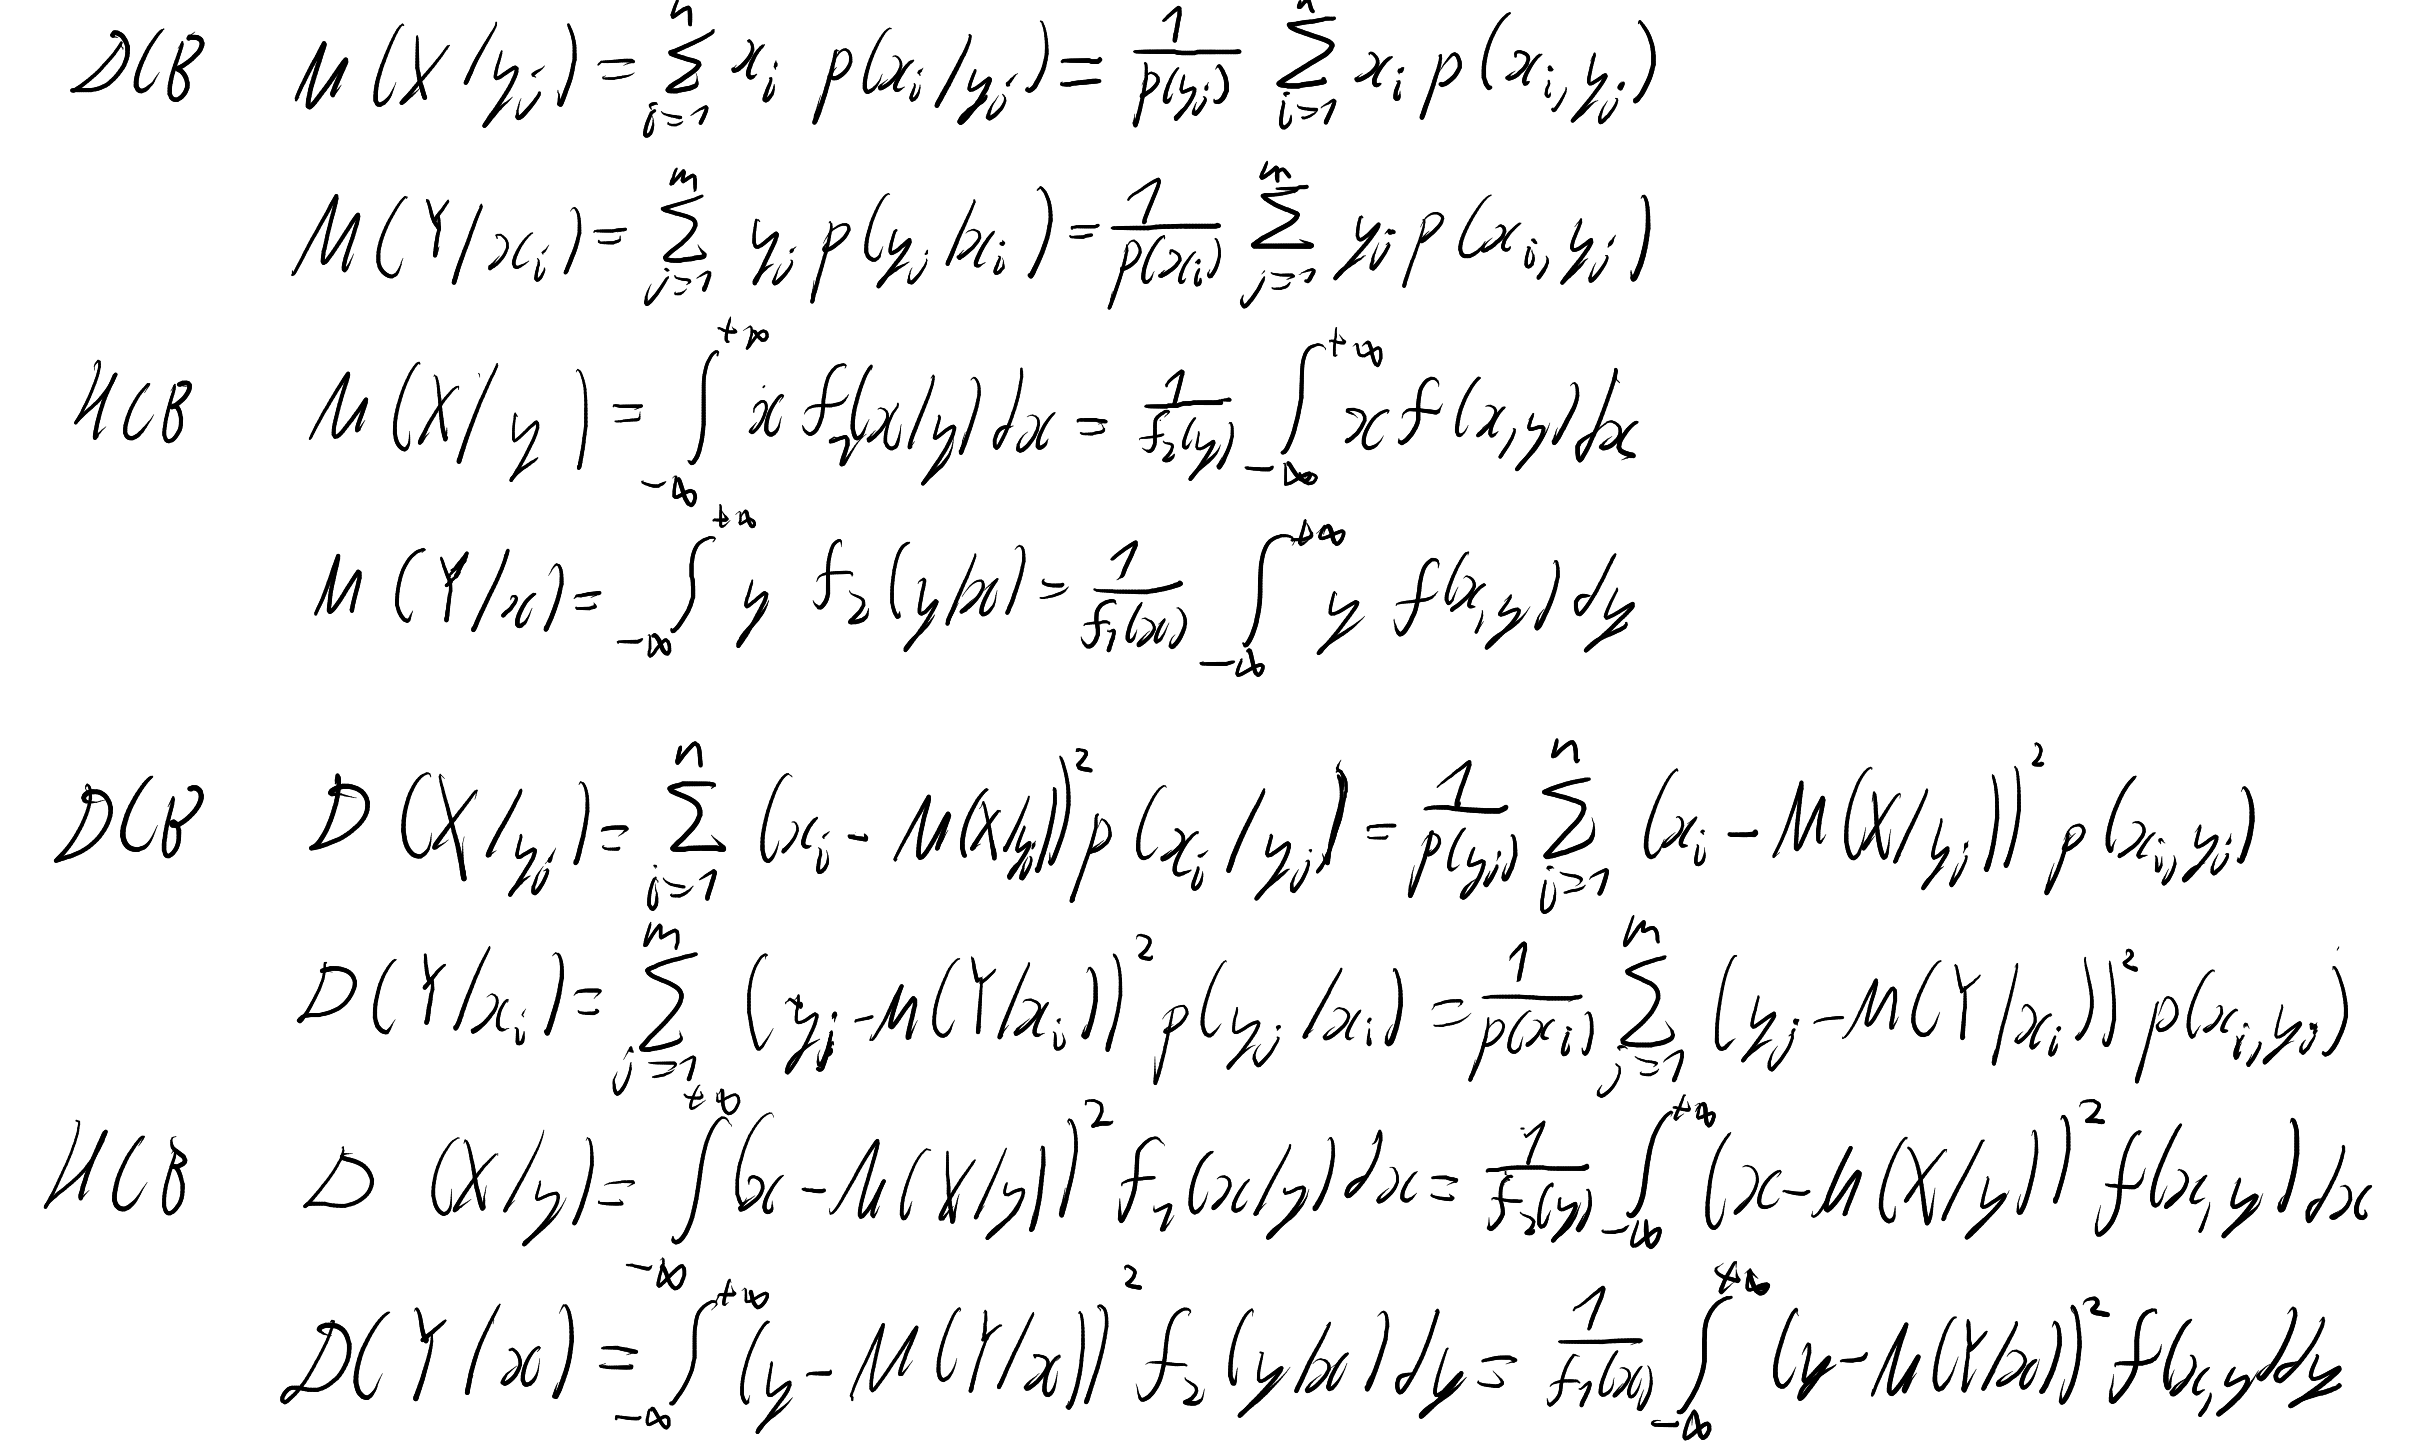 ДСВ M(X/y_j) = \sum_{i=1}^{n} x_i p(x_i/y_j) = \frac{1}{p(y_j)} \sum_{i=1}^{n} x_i p(x_i, y_j)
M(Y/x_i) = \sum_{j=1}^{m} y_j p(y_j/x_i) = \frac{1}{p(x_i)} \sum_{j=1}^{m} y_j p(x_i, y_j)
НСВ M(X/y) = \int_{-∞}^{+∞} x f_1(x/y) dx = \frac{1}{f_2(y)} \int_{-∞}^{+∞} x f(x,y) dx
M(Y/x) = \int_{-∞}^{+∞} y f_2(y/x) = \frac{1}{f_1(x)} \int_{-∞}^{+∞} y f(x,y) dy
ДСВ D(X/y_j) = \sum_{i=1}^{n} (x_i - M(X/y_j))^2 p(x_i/y_j) = \frac{1}{p(y_j)} \sum_{i=1}^{n} (x_i - M(X/y_j))^2 p(x_i, y_j)
D(Y/x_i) = \sum_{j=1}^{m} (y_j - M(Y/x_i))^2 p(y_j/x_i) = \frac{1}{p(x_i)} \sum_{j=1}^{m} (y_j - M(Y/x_i))^2 p(x_i, y_j)
НСВ D(X/y) = \int_{-∞}^{+∞} (x - M(X/y))^2 f_1(x/y) dx = \frac{1}{f_2(y)} \int_{-∞}^{+∞} (x - M(X/y))^2 f(x,y) dx
D(Y/x) = \int_{-∞}^{+∞} (y - M(Y/x))^2 f_2(y/x) dy = \frac{1}{f_1(x)} \int_{-∞}^{+∞} (y - M(Y/x))^2 f(x,y) dy